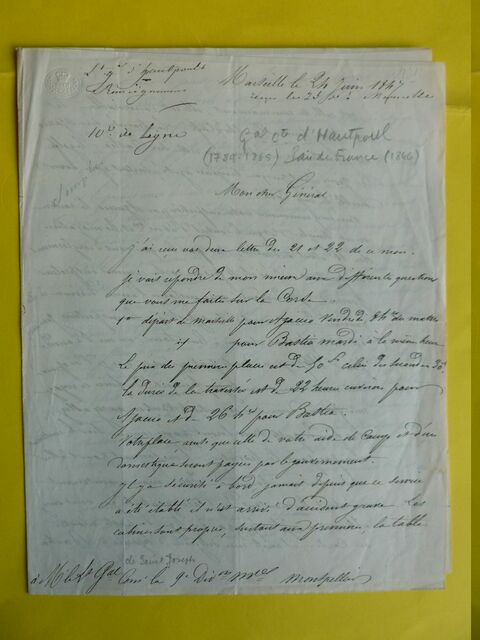 Lt Gl d'Hautpoul
Marseille le 24 Juin 1847
10e de Ligne
Gal Cte d'Hautpoul
(1789-1865) Pair de France (1846)
Mon cher Général
J'ai reçu vos deux lettres des 21 et 22 de ce mois.
Je vais répondre de mon mieux aux différentes questions
que vous me faites sur la Corse.
1er départ de marseille pour Ajaccio Vendredi 8h du matin
id pour Bastia mardi à la même heure
Le prix des premières places est de 50f celui des secondes 30f
la durée de la traversée est de 22 heures environ pour
Ajaccio et de 26 h pour Bastia.
Votre place ainsi que celle de votre aide de Camp et d'un
Domestique seront payées par le gouvernement.
Il y a sécurité à bord jamais depuis que ce service
a été établi il n'est arrivé d'accident grave. Les
cabines sont propres, surtout aux premières. la table
de Saint Joseph
à Mr le Lt Gal Comt la 9e Divon Mre Montpellier